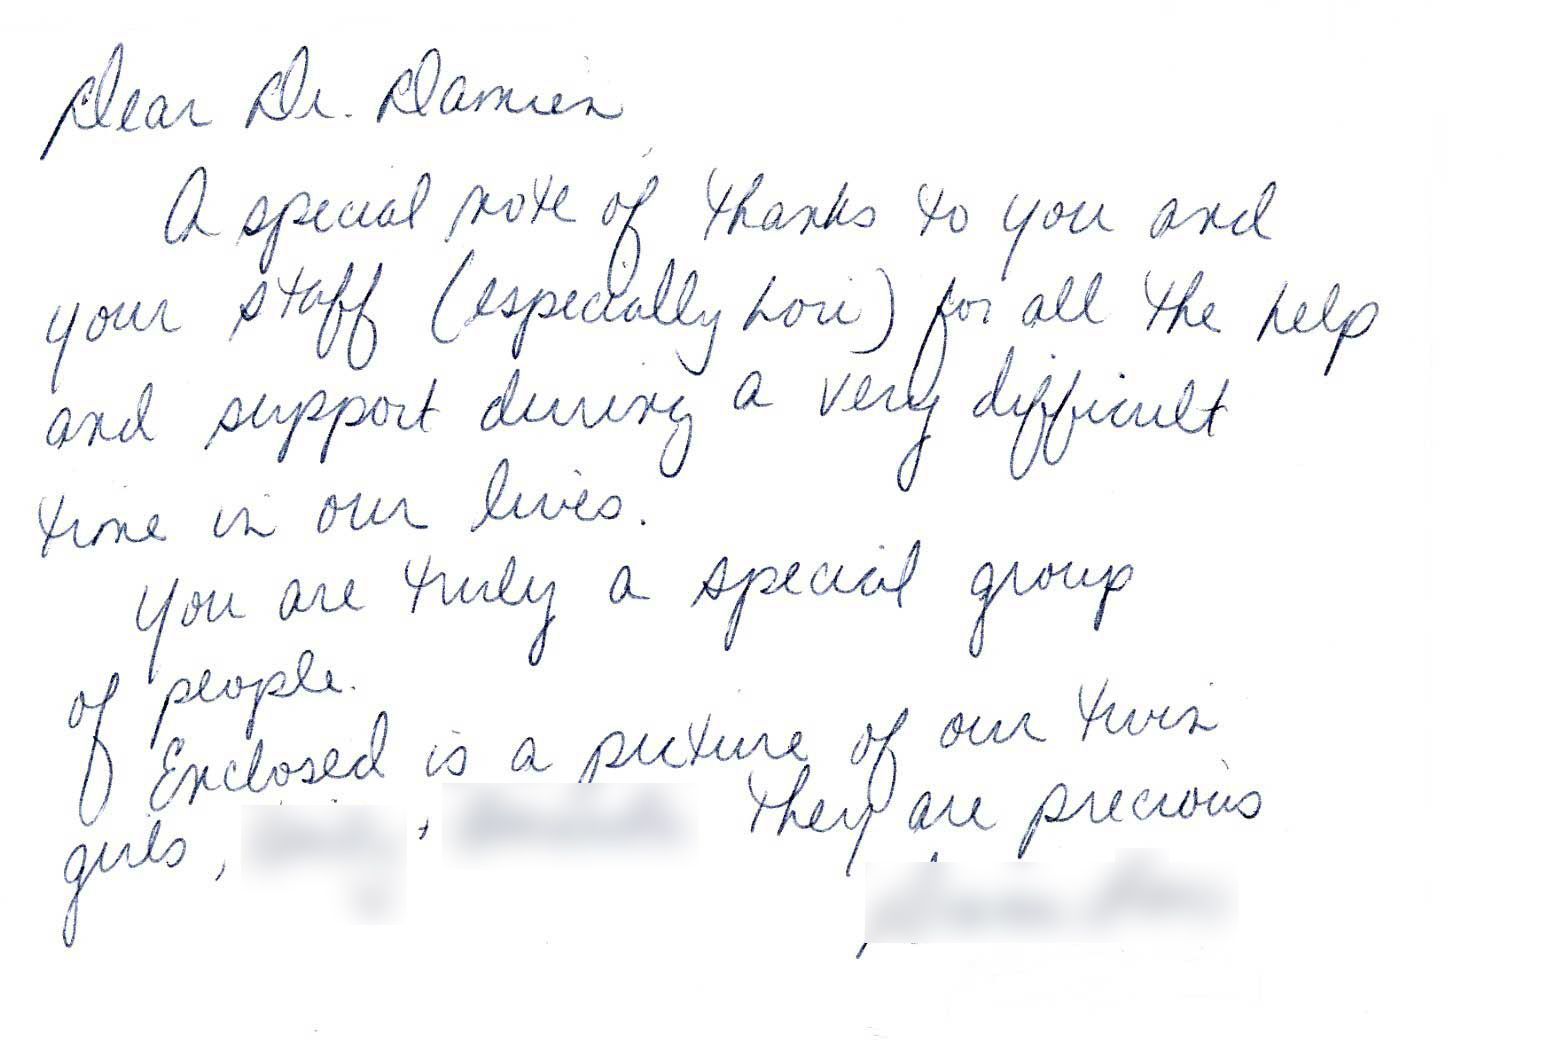 Dear Dr. Damien
A special note of thanks to you and
your staff (especially Lori) for all the help
and support during a very difficult
time in our lives.
You are truly a special group
of people.
Enclosed is a picture of our twin
girls, , They are precious